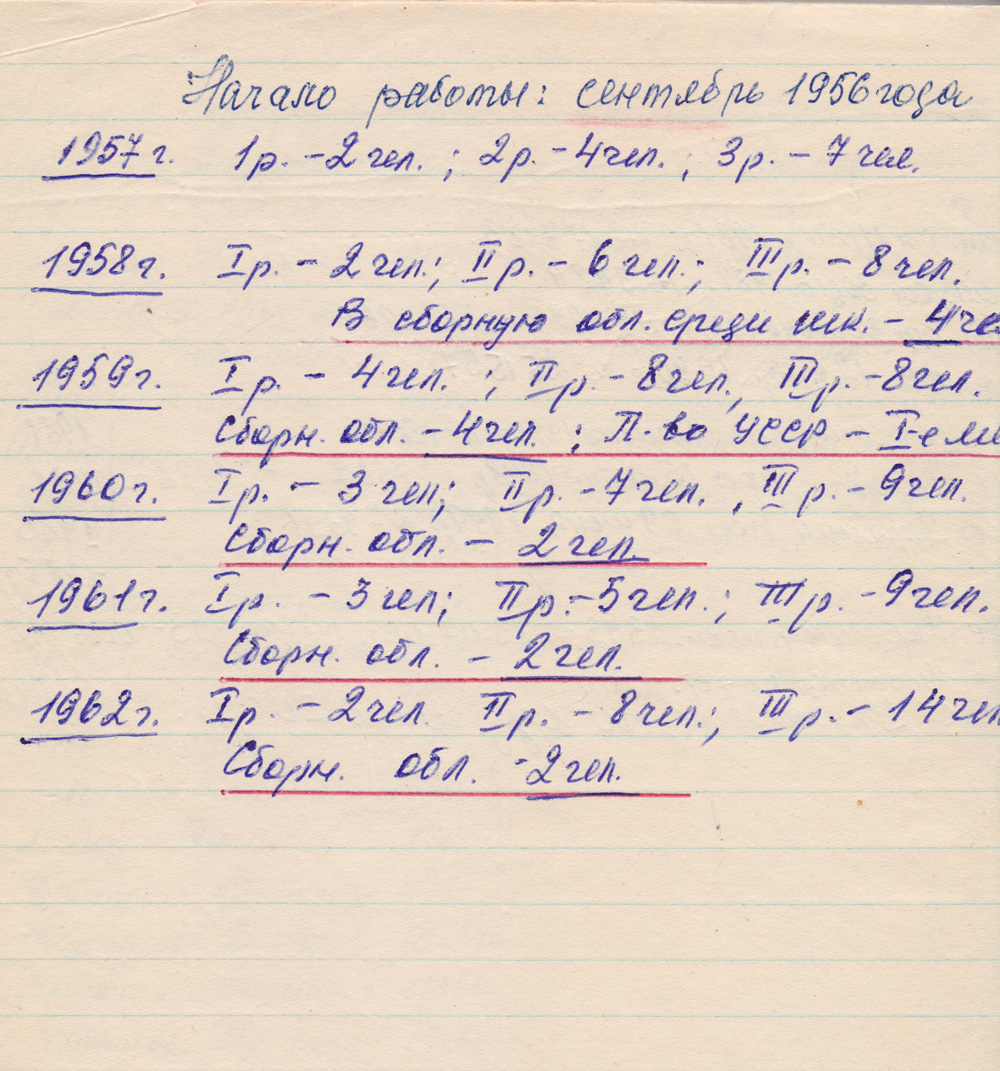 Начало работы: сентябрь 1956 года
1957 г. 1 р. - 2 чел.; 2 р. - 4 чел.; 3 р. - 7 чел.
1958 г. I р. - 2 чел.; II р. - 6 чел.; III р. - 8 чел.
В сборную обл. среди шк. - 4 че
1959 г. I р. - 4 чел.; II р. - 8 чел., III р. - 8 чел.
Сборн. обл. - 4 чел.; П-во УССР - I-е ме
1960 г. I р. - 3 чел; II р. - 7 чел., III р. - 9 чел.
Сборн. обл. - 2 чел.
1961 г. I р. - 3 чел; II р. - 5 чел.; III р. - 9 чел.
Сборн. обл. - 2 чел.
1962 г. I р. - 2 чел. II р. - 8 чел.; III р. - 14 чел
Сборн. обл. - 2 чел.